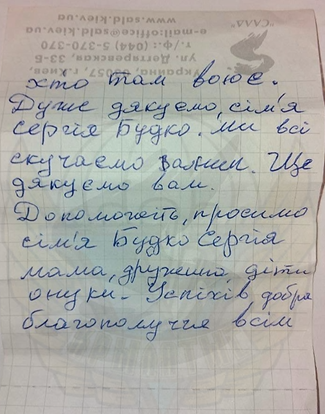 "САЛД"
www.sald.kiev.ua
e-mail:office@sald.kiev.ua
т./ф.: (044) 5-370-370
ул. Дегтяревская, 33-Б
Украина, 03057, г.Киев,
хто там воює.
Дуже дякуємо, сім'я
Сергія Будко. Ми всі
скучаємо за ним. Ще
дякуємо вам.
Допоможіть, просимо
сім'я Будко Сергія
мама, дружина, діти
онуки. Успіхів, добра
благополуччя всім